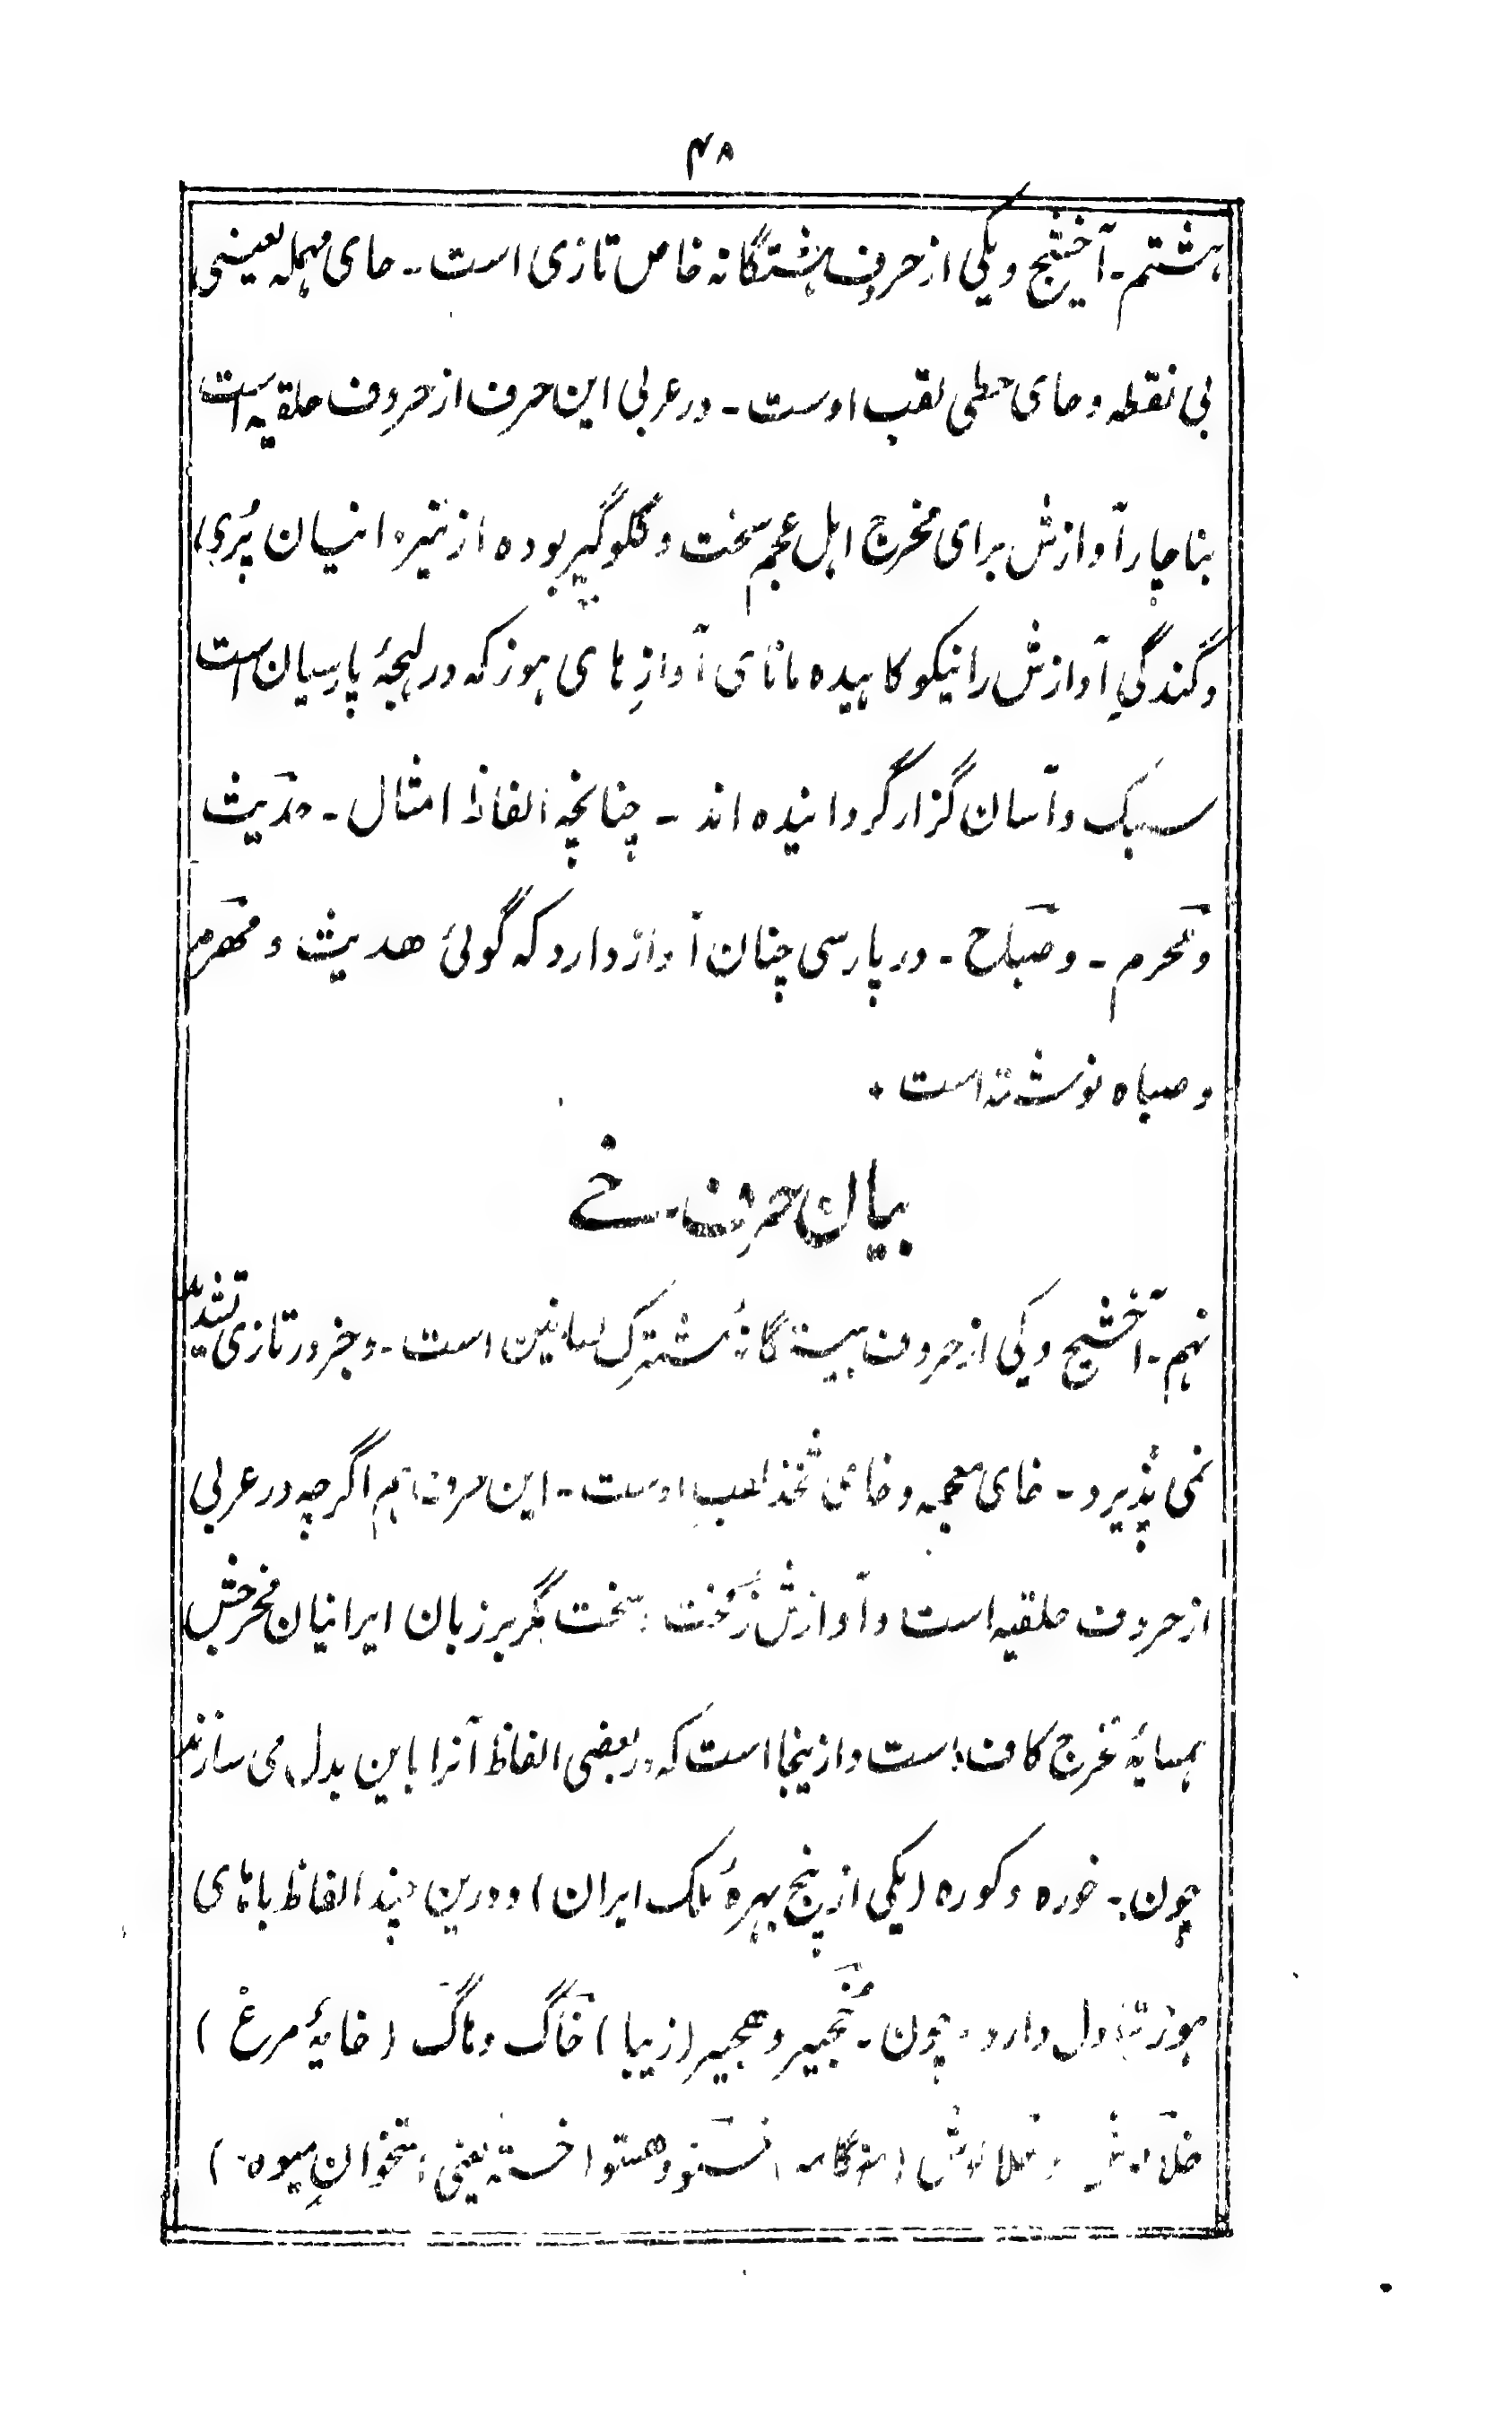 ۴۸
ہشتم ـ آخشیج ویکی از حروف ہشتگانہ خاص تازی است ـ حای مہملہ یعنی
بی نقطہ وحای حطی لقب اوست ـ در عربی این حرف از حروف حلقیہ است
بناچار آوازش برای مخرج اہل عجم سخت وگلوگیر بودہ از ینرہ انیسان پُری
وگندگیِ آوازش را نیکو کاہیدہ مانای آوازِ ہای ہوز کہ در لہجۂ پارسیان است
سبک وآسان گزار گردانیدہ اند ـ چنانچہ الفاظ امثال ـ حَدیث
ومَحرم ـ وصَباح ـ در پارسی چنان آواز دارد کہ گوئی ھدیث و مَھرم
وصباہ نوشتہ است ٠
بیان حرف ـ خے
نہم ـ آخشیج ویکی از حروف بیستگانۂ مشترک لسانین است ـ وجز در تازی تشدید
نمی پذیرد ـ خای معجمہ وخای ثخذ لقب اوست ـ این حرف ہم اگرچہ در عربی
از حروف حلقیہ است وآوازش زُمُخت سخت مگر بر زبان ایرانیان مخرجش
ہمسایۂ مخرج کاف است وازینجا است کہ در بعضی الفاظ آنرا باین بدل می سازند
چون ـ خورہ وکورہ (یکی از پنج بہرۂ ملک ایران) ودرین چند الفاظ باہای
ہوز تبادل دارد ـ چون ـ خُجیر وھجیر (زیبا) خَاگ وہاگ (خایۂ مرغ)
خَلالوش و ھلالوش (ہنگامہ) خَستو وھستو (خستہ یعنی استخوانِ میوہ)